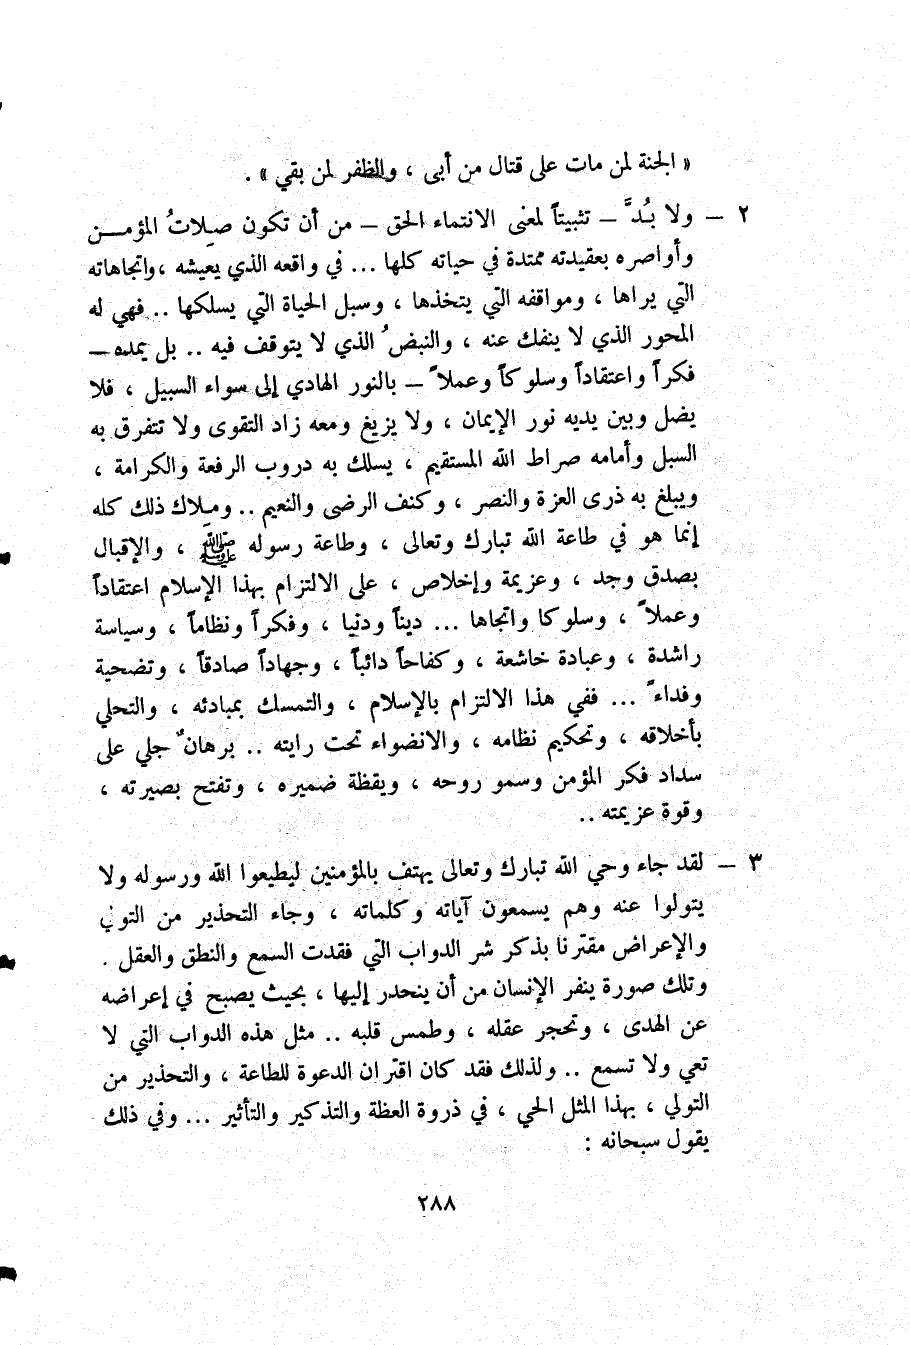 « الجنة لمن مات على قتال من أبى ، والظفر لمن بقي » .
٢ – ولا بُدَّ – تثبيتاً لمعنى الانتماء الحق – من أن تكون صِلاتُ المؤمن
وأواصره بعقيدته ممتدة في حياته كلها ... في واقعه الذي يعيشه ،واتجاهاته
التي يراها ، ومواقفه التي يتخذها ، وسبل الحياة التي يسلكها .. فهي له
المحور الذي لا ينفك عنه ، والنبضُ الذي لا يتوقف فيه .. بل يمده –
فكراً واعتقاداً وسلوكاً وعملاً – بالنور الهادي إلى سواء السبيل ، فلا
يضل وبين يديه نور الإيمان ، ولا يزيغ ومعه زاد التقوى ولا تتفرق به
السبل وأمامه صراط الله المستقيم ، يسلك به دروب الرفعة والكرامة ،
ويبلغ به ذرى العزة والنصر ، وكنف الرضى والنعيم .. ومِلاك ذلك كله
إنما هو في طاعة الله تبارك وتعالى ، وطاعة رسوله ﷺ ، والإقبال
بصدق وجد ، وعزيمة وإخلاص ، على الالتزام بهذا الإسلام اعتقاداً
وعملاً ، وسلوكا واتجاها ... ديناً ودنيا ، وفكراً ونظاماً ، وسياسة
راشدة ، وعبادة خاشعة ، وكفاحاً دائباً ، وجهاداً صادقاً ، وتضحية
وفداءً ... ففي هذا الالتزام بالإسلام ، والتمسك بمبادئه ، والتحلي
بأخلاقه ، وتحكيم نظامه ، والانضواء تحت رايته .. برهانٌ جلي على
سداد فكر المؤمن وسمو روحه ، ويقظة ضميره ، وتفتح بصيرته ،
وقوة عزيمته ..
٣ – لقد جاء وحي الله تبارك وتعالى يهتف بالمؤمنين ليطيعوا الله ورسوله ولا
يتولوا عنه وهم يسمعون آياته وكلماته ، وجاء التحذير من التولي
والإعراض مقترنا بذكر شر الدواب التي فقدت السمع والنطق والعقل .
وتلك صورة ينفر الإنسان من أن ينحدر إليها ، بحيث يصبح في إعراضه
عن الهدى ، وتحجر عقله ، وطمس قلبه .. مثل هذه الدواب التي لا
تعي ولا تسمع .. ولذلك فقد كان اقتران الدعوة للطاعة ، والتحذير من
التولي ، بهذا المثل الحي ، في ذروة العظة والتذكير والتأثير ... وفي ذلك
يقول سبحانه :
٢٨٨